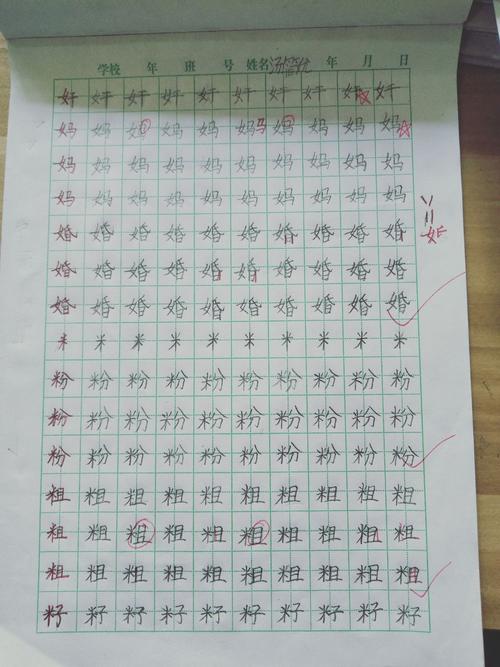 学校 年 班 号 姓名 年 月 日
奸 奸 奸 奸 奸 奸 奸 奸 奸 奸
妈 妈 妈 妈 妈 妈 妈 妈 妈 妈
妈 妈 妈 妈 妈 妈 妈 妈 妈 妈
妈 妈 妈 妈 妈 妈 妈 妈 妈 妈
婚 婚 婚 婚 婚 婚 婚 婚 婚 婚
婚 婚 婚 婚 婚 婚 婚 婚 婚 婚
婚 婚 婚 婚 婚 婚 婚 婚 婚 婚
米 米 米 米 米 米 米 米 米 米
粉 粉 粉 粉 粉 粉 粉 粉 粉 粉
粉 粉 粉 粉 粉 粉 粉 粉 粉 粉
粉 粉 粉 粉 粉 粉 粉 粉 粉 粉
粗 粗 粗 粗 粗 粗 粗 粗 粗 粗
粗 粗 粗 粗 粗 粗 粗 粗 粗 粗
粗 粗 粗 粗 粗 粗 粗 粗 粗 粗
籽 籽 籽 籽 籽 籽 籽 籽 籽 籽